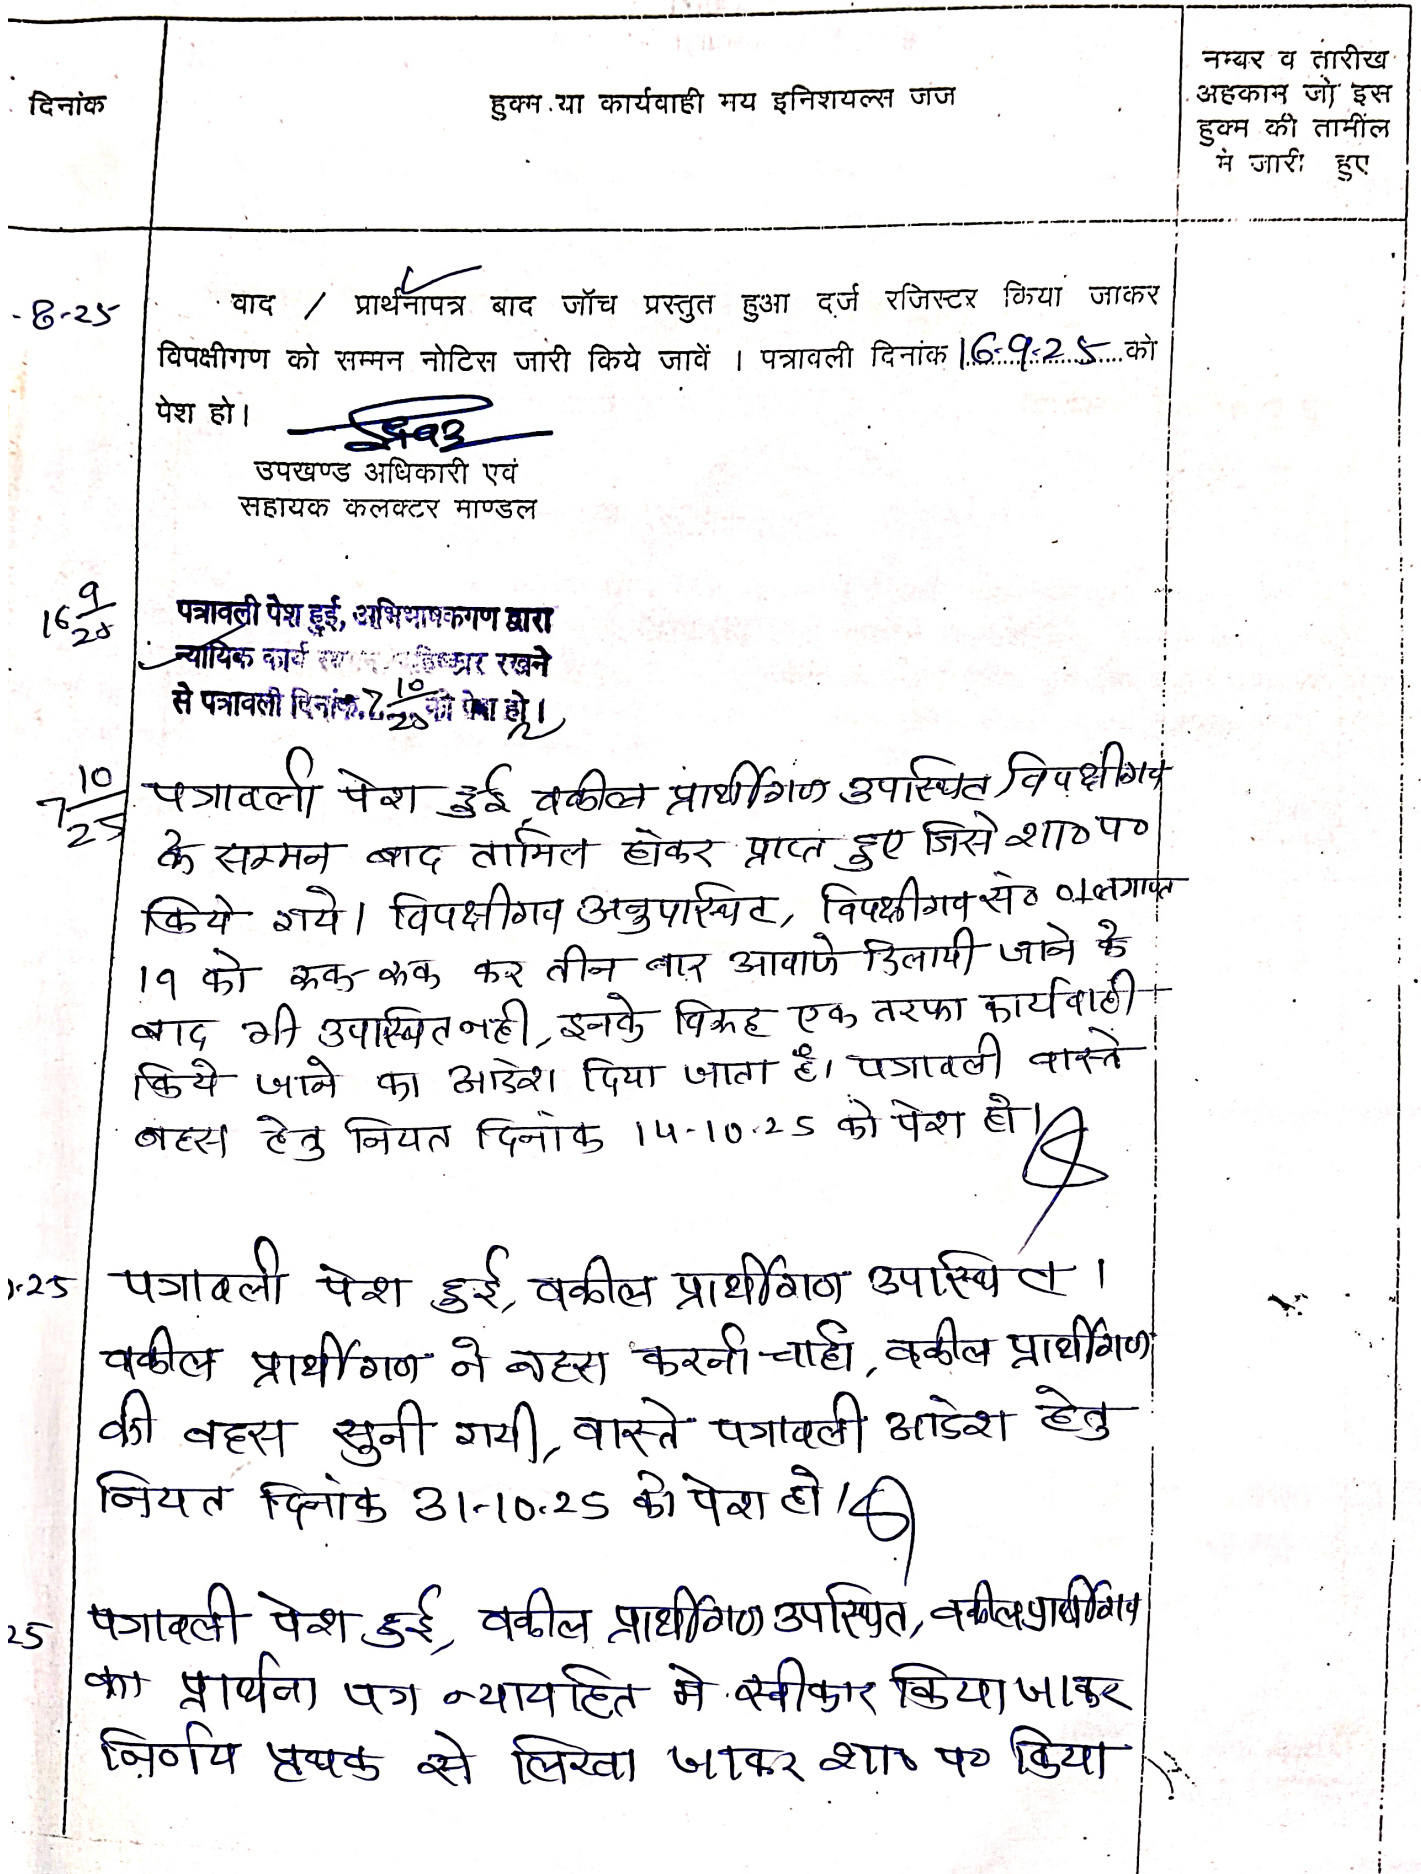 दिनांक
हुक्म या कार्यवाही मय इनिशयल्स जज
नम्बर व तारीख
अहकाम जो इस
हुक्म की तामील
में जारी हुए
-8-25
वाद / प्रार्थनापत्र बाद जॉच प्रस्तुत हुआ दर्ज रजिस्टर किया जाकर
विपक्षीगण को सम्मन नोटिस जारी किये जावें । पत्रावली दिनांक 16-9-25 को
पेश हो।
उपखण्ड अधिकारी एवं
सहायक कलक्टर माण्डल
16 9/25
पत्रावली पेश हुई, अभिभाषकगण द्वारा
न्यायिक कार्य रखने
से पत्रावली दिनांक 7 10/25 को पेश हो।
7 10/25
पत्रावली पेश हुई, वकील प्रार्थीगण उपस्थित, विपक्षीगण
के सम्मन बाद तामिल होकर प्राप्त हुए जिसे शा० प०
किये गये। विपक्षीगण अनुपस्थित, विपक्षीगण सं० 01 लगायत
19 को रूक-रूक कर तीन बार आवाजे दिलायी जाने के
बाद भी उपस्थित नही, इनके विरूद्ध एक तरफा कार्यवाही
किये जाने का आदेश दिया जाता है। पत्रावली वास्ते
बहस हेतु नियत दिनांक 14-10-25 को पेश हो।
-25
पत्रावली पेश हुई, वकील प्रार्थीगण उपस्थित ।
वकील प्रार्थीगण ने बहस करनी चाही, वकील प्रार्थीगण
की बहस सुनी गयी, वास्ते पत्रावली आदेश हेतु
नियत दिनांक 31-10-25 को पेश हो।
25
पत्रावली पेश हुई, वकील प्रार्थीगण उपस्थित, वकील प्रार्थीगण
का प्रार्थना पत्र न्यायहित मे स्वीकार किया जाकर
निर्णय पृथक से लिखा जाकर शा० प० किया